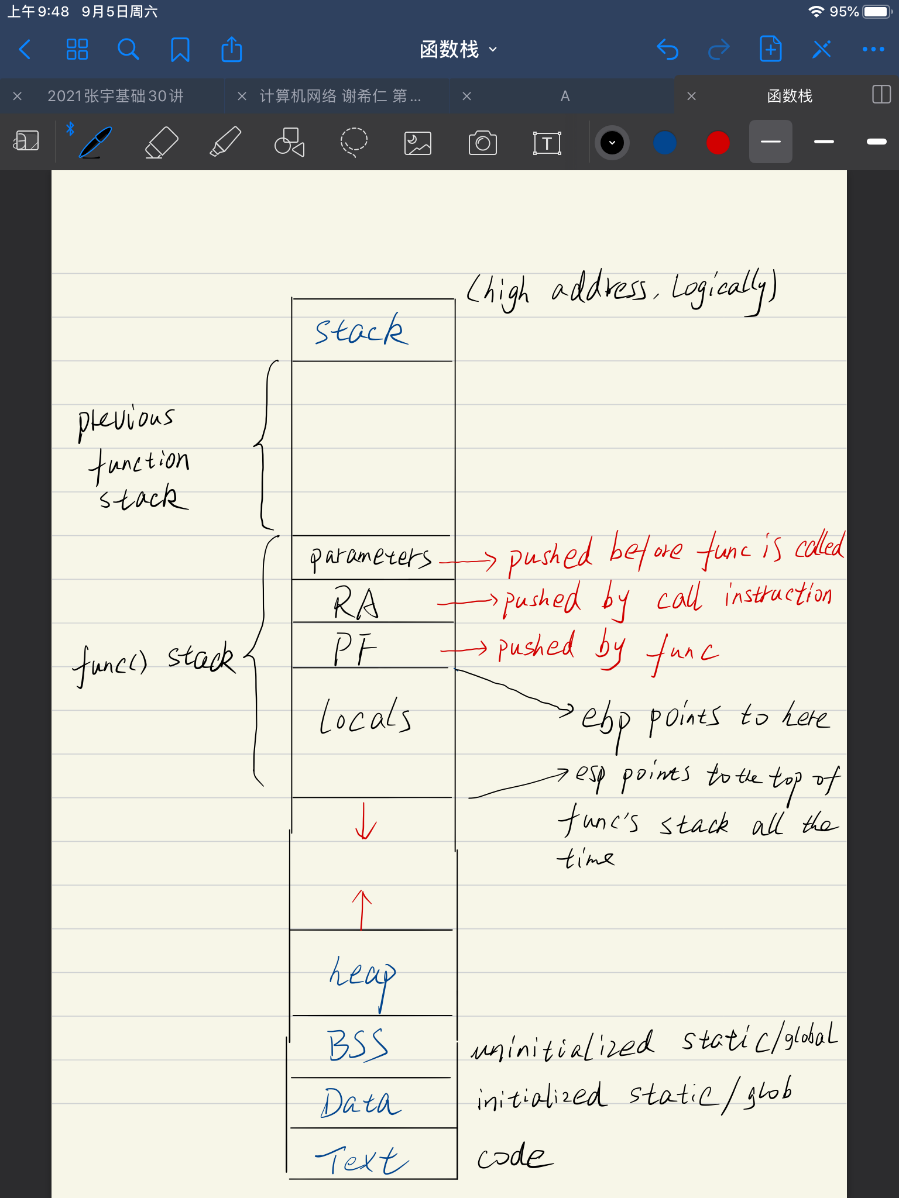 上午9:48 9月5日周六 95%
函数栈
2021张宇基础30讲 计算机网络 谢希仁 第... A 函数栈
T
(high address, Logically)
stack
previous
function
stack
parameters pushed before func is called
RA pushed by call instruction
PF pushed by func
func() stack
Locals
ebp points to here
esp points to the top of
func's stack all the
time
heap
BSS uninitialized static/global
Data initialized static/glob
Text code